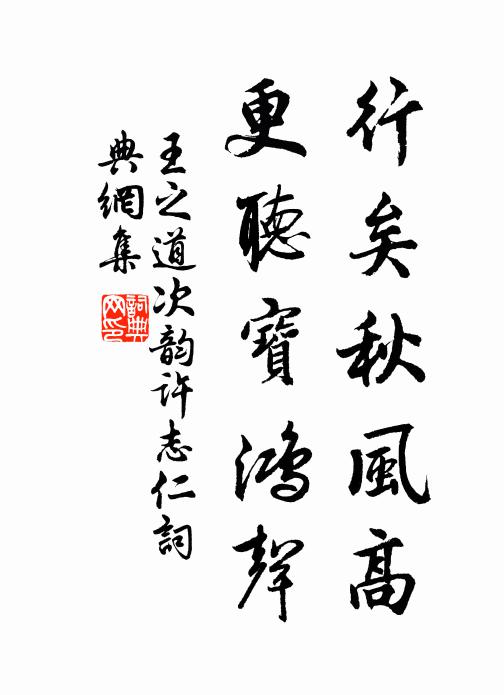 行矣秋風高
更聽寶鴻聲
王之道次韵許志仁詞
典網集
詞典网印